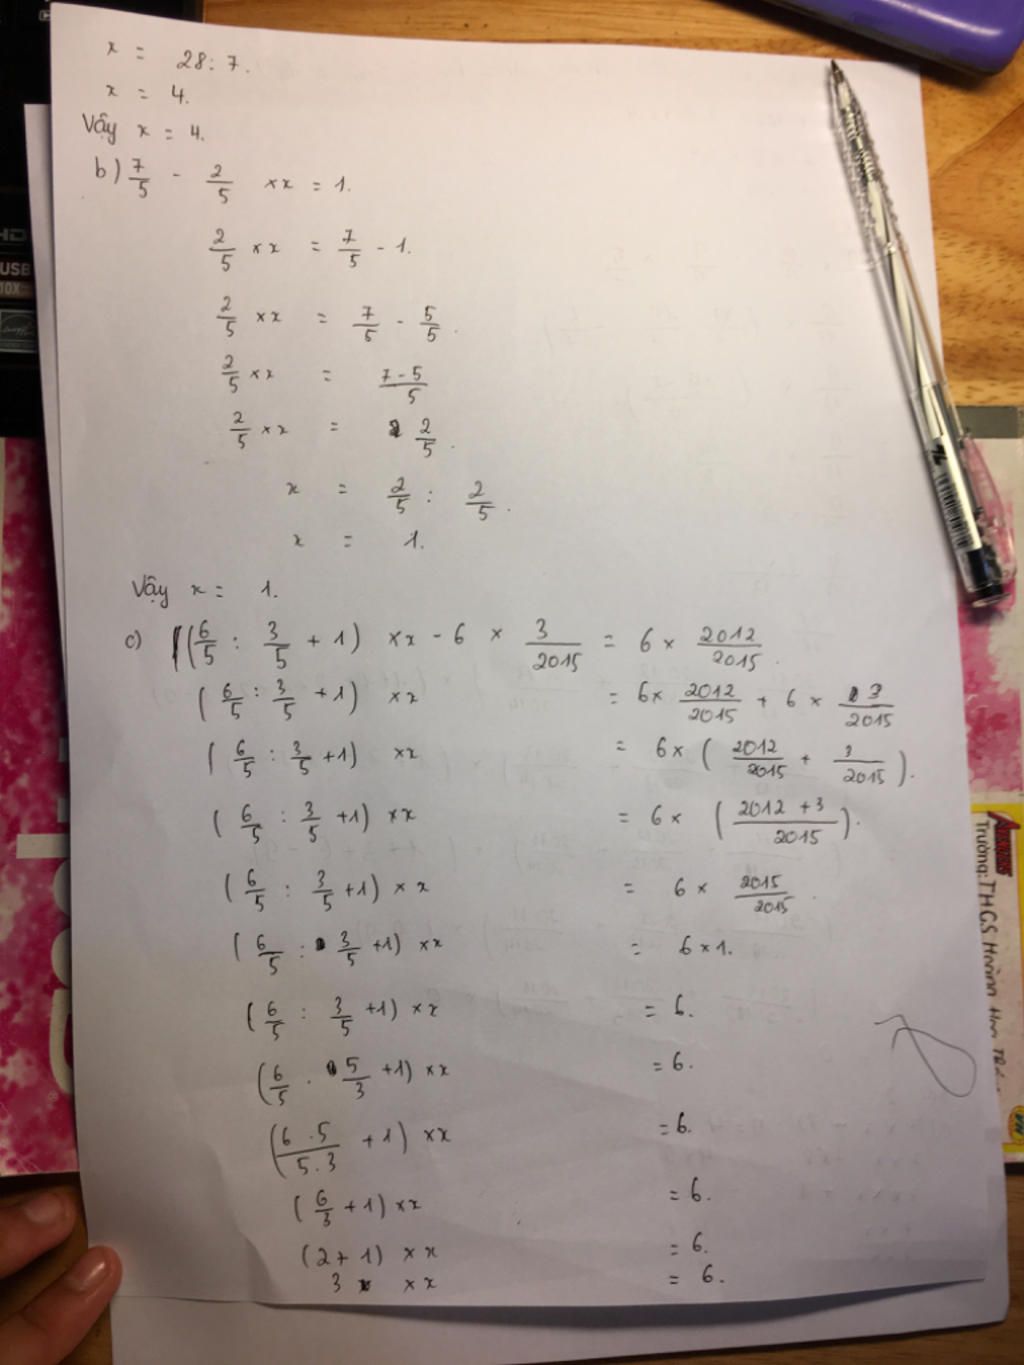 x = 28 : 7.
x = 4.
Vậy x = 4.
b) 7/5 - 2/5 × x = 1.
2/5 × x = 7/5 - 1.
2/5 × x = 7/5 - 5/5.
2/5 × x = (7 - 5)/5
2/5 × x = 2/5.
x = 2/5 : 2/5.
x = 1.
Vậy x = 1.
c) (6/5 : 3/5 + 1) × x - 6 × 3/2015 = 6 × 2012/2015.
(6/5 : 3/5 + 1) × x = 6 × 2012/2015 + 6 × 3/2015
(6/5 : 3/5 + 1) × x = 6 × (2012/2015 + 3/2015).
(6/5 : 3/5 + 1) × x = 6 × ((2012 + 3)/2015).
(6/5 : 3/5 + 1) × x = 6 × 2015/2015.
(6/5 : 3/5 + 1) × x = 6 × 1.
(6/5 : 3/5 + 1) × x = 6.
(6/5 . 5/3 + 1) × x = 6.
((6 . 5)/(5 . 3) + 1) × x = 6.
(6/3 + 1) × x = 6.
(2 + 1) × x = 6.
3 × x = 6.
HD
USB
10X
Trường: THCS Hoàng Hoa